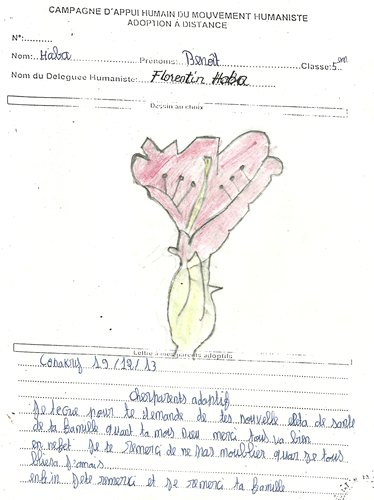 CAMPAGNE D'APPUI HUMAIN DU MOUVEMENT HUMANISTE
ADOPTION A DISTANCE
N°:..........
Nom: Haba Prénoms: Benoît Classe: 5em
Nom du Délégué Humaniste: Florentin Haba
Dessin au choix
Lettre à mes parents adoptifs
Conakry 19/12/13
Cher parents adoptif
Je tecrie pour te demande de tes nouvelle de sante
de ta famille quant ta mois Dieu merci tous va bien
en nefet Je te remerci de ne pas moublier quar Je tous
bliera Jamais
enfin Je te remerci et Je remerci ta famille